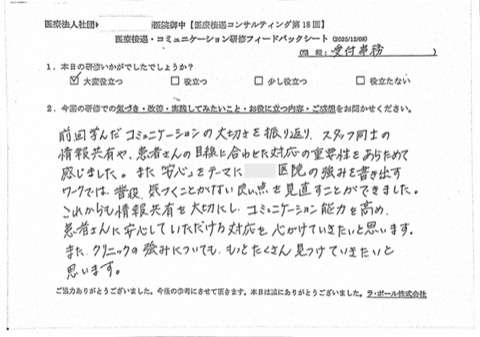 医療法人社団 医院御中【医療接遇コンサルティング第18回】
医療接遇・コミュニケーション研修フィードバックシート (2025/12/08)
(職種: 受付事務)
1. 本日の研修いかがでしたでしょうか?
☑ 大変役立つ □ 役立つ □ 少し役立つ □ 役立たない
2. 今回の研修での気づき・改善・実践してみたいこと・お役に立つ内容・ご感想をお聞かせください。
前回学んだコミュニケーションの大切さを振り返り、スタッフ同士の
情報共有や、患者さんの目線に合わせた対応の重要性をあらためて
感じました。また「安心」をテーマに 医院の強みを書き出す
ワークでは、普段、気づくことがない良い点を見直すことができました。
これからも情報共有を大切にし、コミュニケーション能力を高め、
患者さんに安心していただける対応を心がけていきたいと思います。
また、クリニックの強みについても、もっとたくさん見つけていきたいと
思います。
ご協力ありがとうございました。今後の参考にさせて頂きます。本日は誠にありがとうございました。ラ・ポール株式会社